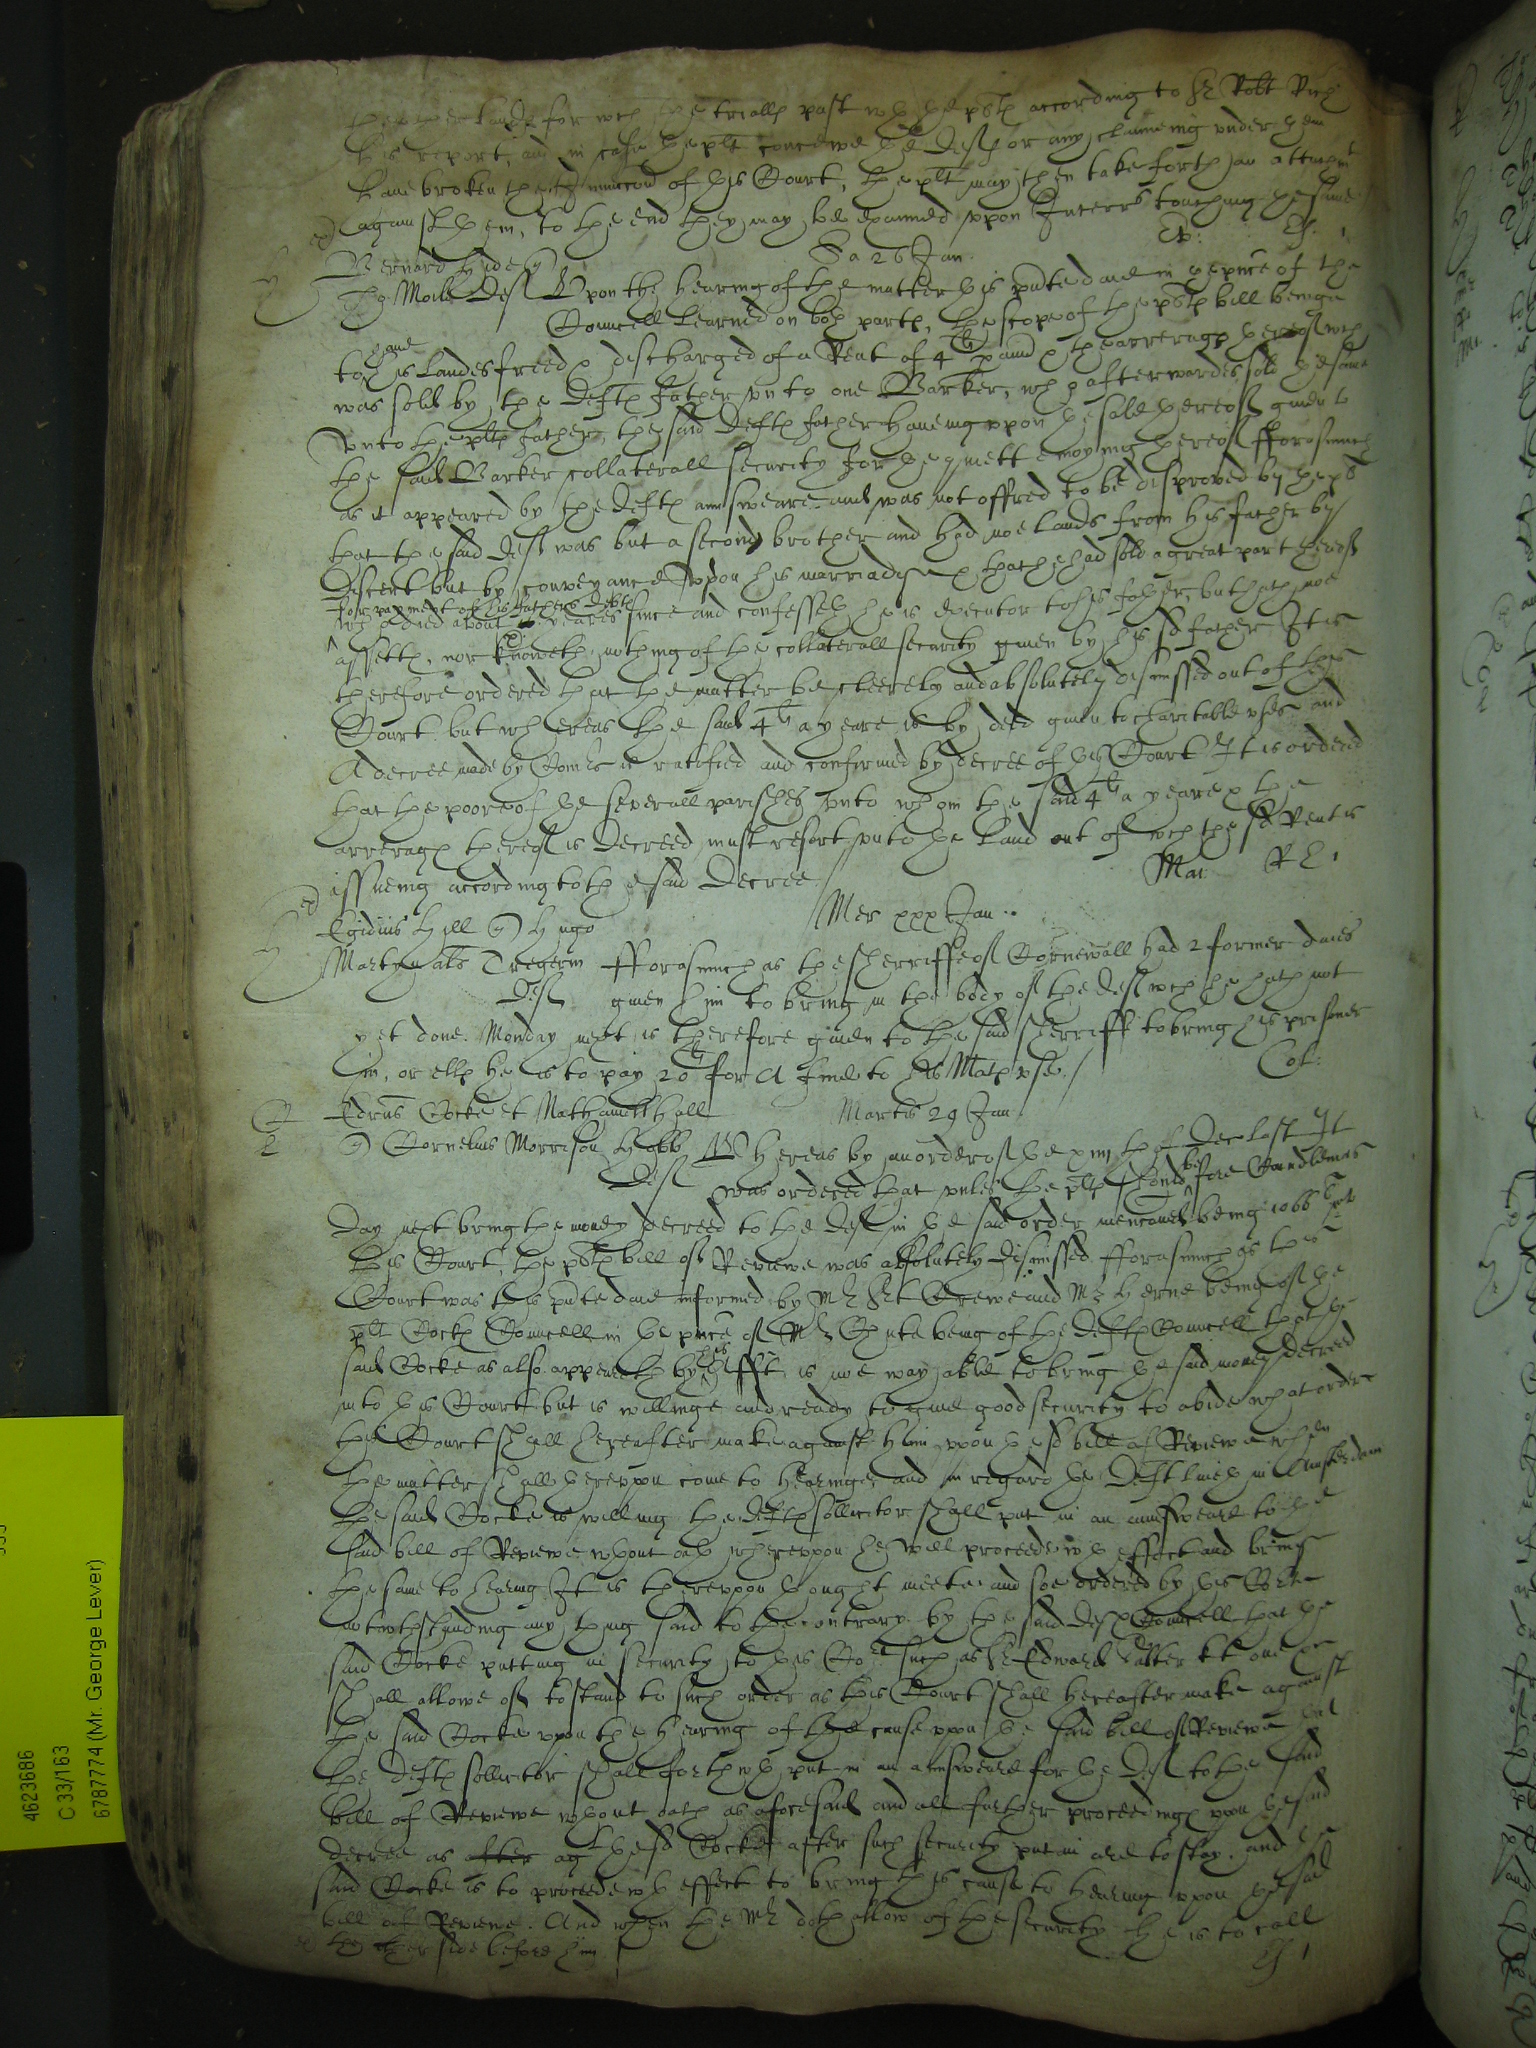 landes for wch the triall past wth the plt according to Sr Robt Rich
his report, and in case the plt conceive the Deft or any clameing under them
have broken the Iniunccon of this Court, the plt may then take forth an attachmt
against them, to the end they may be examined uppon Interrs touching the same
Sa 26 Jan
Bernard Hide
Moile Deft Upon the hearing of the matter this pñte daie in the pñce of the
Councell Learned on both parts, the scope of the plts bill being
to have his Landes freed & discharged of a Rent of 4li p ann & the arrerages thereof wch
was sold by the Defts father unto one Barker, who afterwardes sold the same
unto the plts father, the said Defts father haveing uppon the sale thereof given to
the said Barker collaterall security for the quiett enioying thereof fforasmuch
as it appeared by the Defts answeare and was not offred to be disproved by the plt
that the said Deft was but a second brother and had noe lands from his father by
Discent but by conveyance uppon his marriadge & that he had sold a great part thereof
for payment of his fathers debts
who died about yeares since and confesseth he is executor to his father, but hath noe
assetts, nor knoweth nothing of the collaterall security given by his sd father It is
therefore ordered that the matter be cleerely and absolutely dismissed out of this
Court but whereas the said 4li a yeare is by deed given to charitable uses and
A decree made by Comrs is ratified and confirmed by decree of this Court It is ordered
that the poore of the severall parishes unto whom the said 4li a yeare & the
arrerages thereof is Decreed must resort unto the land out of wch the sd Rent is
issueing according to the said Decree
Mar R
Mer xxx Jan
Egidius Hill Hugo
Martyn als Tregerin fforasmuch as the sherriffe of Cornewall had 2 former daies
Deft given him to bring in the body of the Deft wch he hath not
yet done. Monday next is therefore given to the said sherriff to bring his prisoner
in, or ells he is to pay 20li for a fine to his Mats use./
Col:
Edrus Cocke et Nathaniell Hall Martis 29 Jan
Cornelius Morrison Hobb Whereas by an order of the xiiijth of Dec last It
Deft was ordered that unles the plt should before Candlemas
Day next bring the money decreed to the Deft in the said order menconed being 1066li into
this Court, the plts bill of Reviewe was absolutely dismissed fforasmuch as this
Court was this pñte daie informed by Mr Srt Crewe and Mr Herne being of the
plt Cocks Councell in the pñce of Mr Chute being of the Defts Councell that the
said Cocke as also appeareth by his Afft, is noe way able to bring the said money decreed
into this Court but is willinge and ready to give good security to abide what order
the Court shall hereafter make against him uppon the sd bill of Reviewe when
the matter shall thereuppon come to hearinge and in regard the Deft liveth in Amsterdam
the said Cocke is willing the Defts sollicitor shall put in an answeare to the
said bill of Reviewe wthout oath whereuppon he will proceede wth effect and bring
the same to hearing It is thereuppon thought meete and soe ordered by this Corte
notwthstanding any thing said to the contrary by the said Defts Councell that the
said Cocke putting in security to this Cort such as Sr Edward Salter kt one
shall allowe of to stand to such order as this Court shall hereafter make against
the said Cocke uppon the hearing of the cause uppon the said bill of Reviewe that
the Defts sollicitor shall forthwth put in an answeare for the Deft to the said
bill of Reviewe wthout oath as aforesaid and all further proceedings uppon the said
decree as agt the sd Cocke after such security put in are to stay. and the
said Cocke is to proceede wth effect to bring this cause to hearing uppon the said
bill of Reviewe. And when the Mr doth allow of the security he is to call
the other side before him
4623686
C 33/163
6787774 (Mr. George Lever)